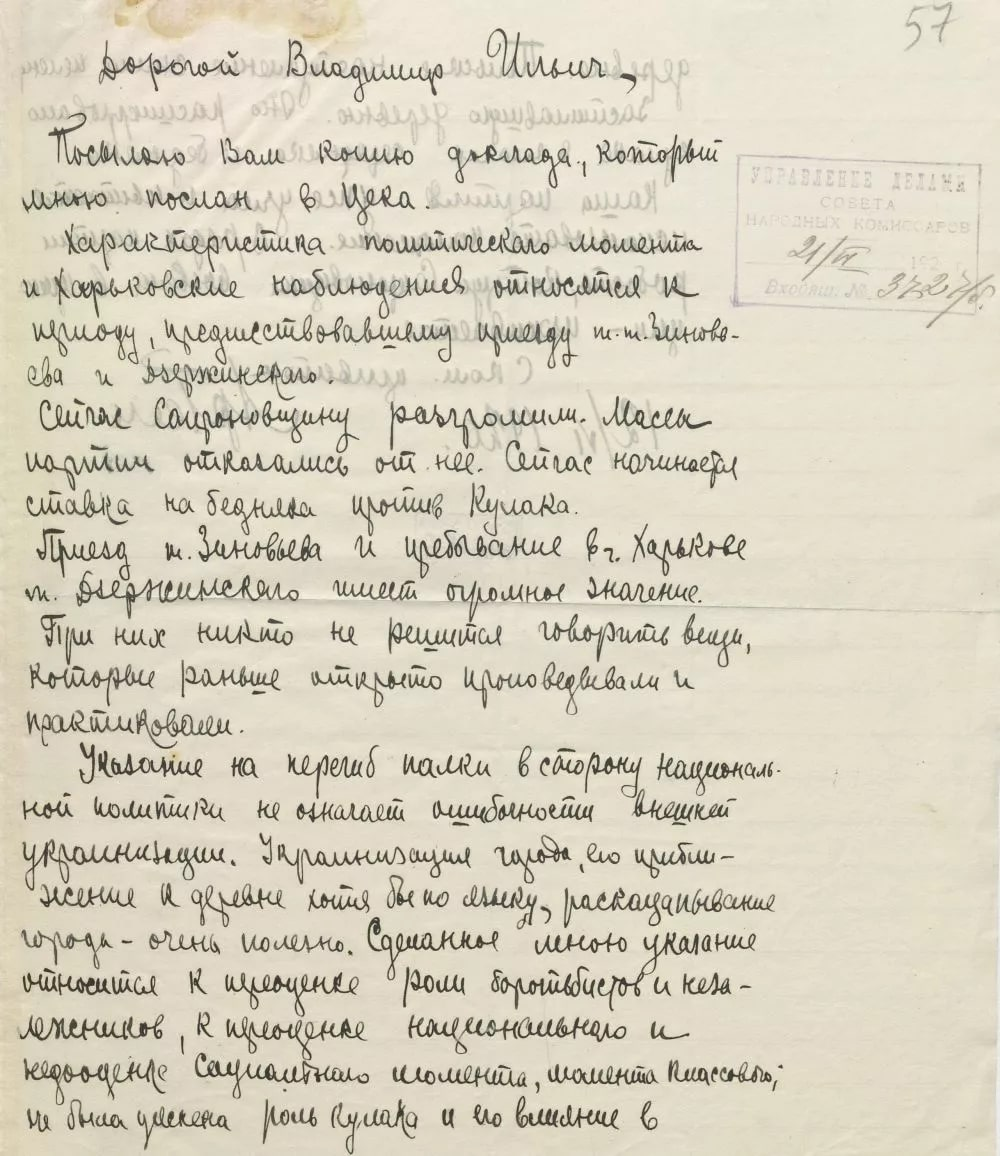 57
Дорогой Владимир Ильич,
Посылаю Вам копию доклада, который
мною послан в Цека.
УПРАВЛЕНИЕ ДЕЛАМИ
СОВЕТА
НАРОДНЫХ КОМИССАРОВ
21/VI 192 г.
Входящ. № 3727/б
Характеристика политического момента
и Харьковские наблюдения относятся к
периоду, предшествовавшему приезду т.т. Зиновь-
ева и Дзержинского.
Сейчас Сапроновщину разгромили. Массы
партии отказались от нее. Сейчас начинается
ставка на бедняка против Кулака.
Приезд т. Зиновьева и пребывание в г. Харькове
т. Дзержинского имеет огромное значение.
При них никто не решится говорить вещи,
которые раньше открыто проповедывали и
практиковали.
Указание на перегиб палки в сторону националь-
ной политики не означает ошибочности внешней
украинизации. Украинизация города, его прибли-
жение к деревне хотя бы по языку, раскацапывание
города - очень полезно. Сделанное мною указание
относится к переоценке роли боротьбистов и неза-
лежников, к переоценке национального и
недооценке социального момента, момента классового;
не была уяснена роль кулака и его влияние в